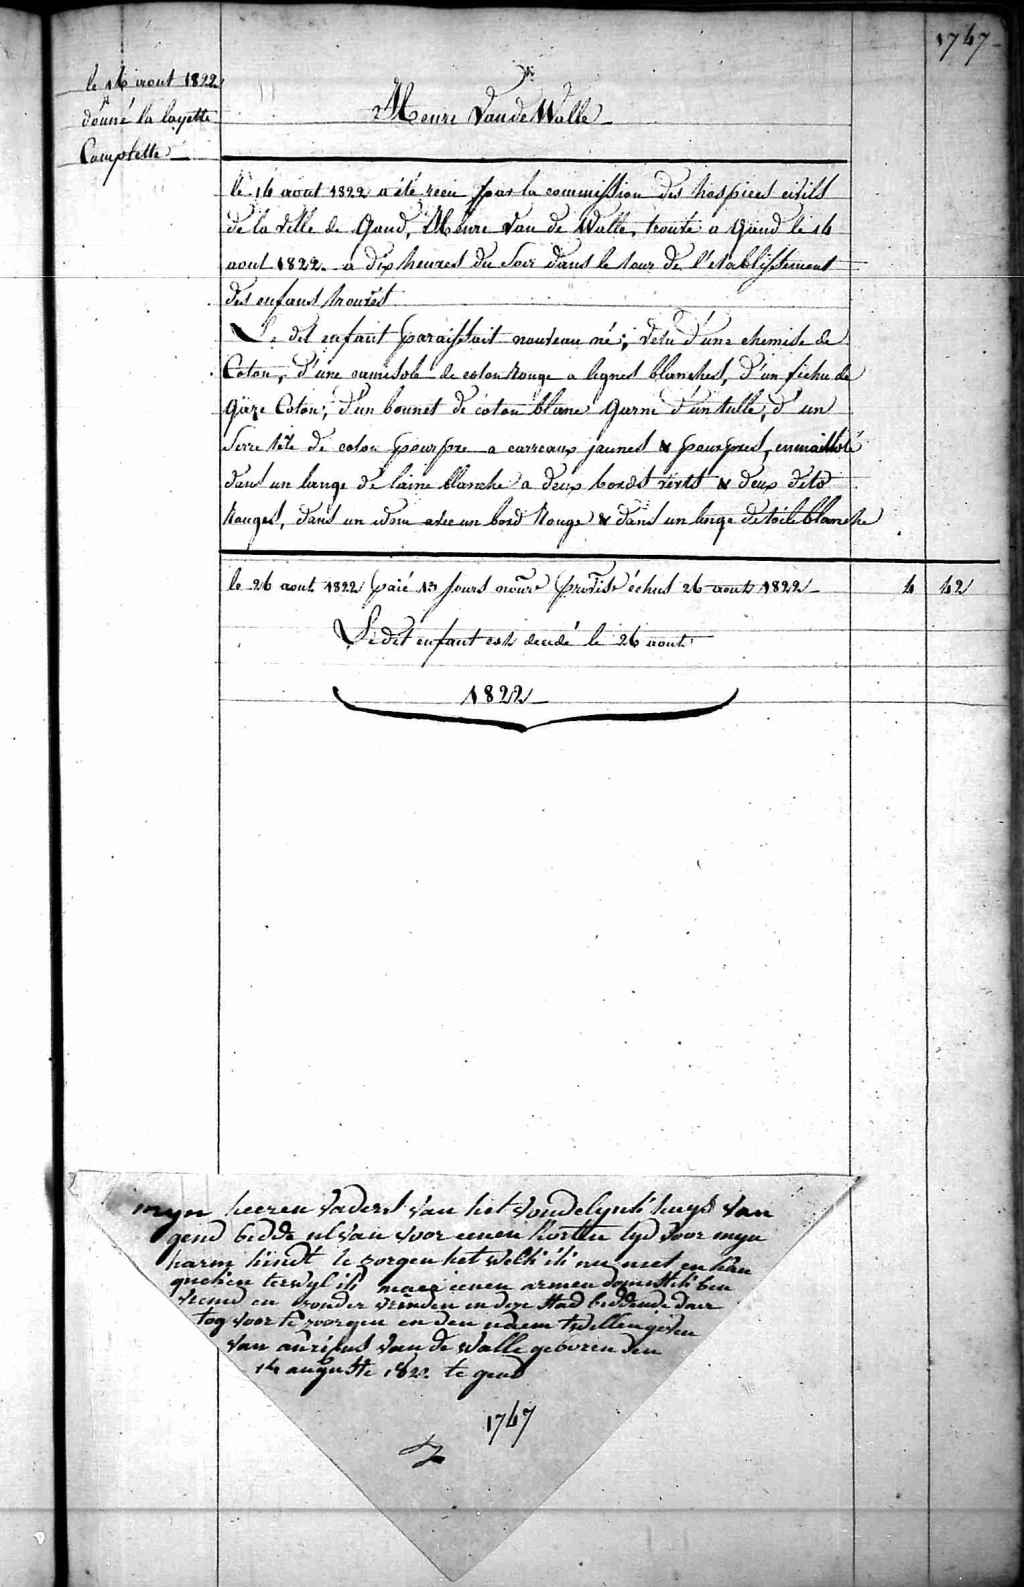 1747
le 14 aout 1822
donné la layette
Complette
Henri Van de Walle
le 14 aout 1822 a été recu par la commission des hospices civils
de la ville de Gand, Henri Van de Walle, trouvé a Gand le 14
aout 1822 a dix heures du Soir dans le tour de l'etablissement
des enfans trouvés
Le dit enfant paraissait nouveau né; vetu d'une chemise de
Coton, d'une camisole de coton Rouge a lignes blanches, d'un fichu de
Gaze Coton; d'un bonnet de coton blanc Garni d'un tulle, d'un
Serre tête de coton pourpre a carreaux jaunes & pourpres, emmailloté
dans un lange de laine blanche a deux bords verts & deux dito
Rouges, dans un idem avec un bord Rouge & dans un linge de toile blanche
le 26 aout 1822 paié 13 Jours nourre provise échus 26 aout 1822 4 42
Le dit enfant est decedé le 26 aout
1822
myn heeren vaders van het vondelynk huys van
gend bidde ul van voor eenen korten tyd voor myn
harm kindt te zorgen het welk ik nu niet en kan
terwyl ik maer eenen armen domestik ben
vremd en zonder vrinden in deze stad biddende daer
tog voor te zoorgen en den naem t willen geven
van anrikus van de walle geboren den
14 auguste 1822 te gend
1747